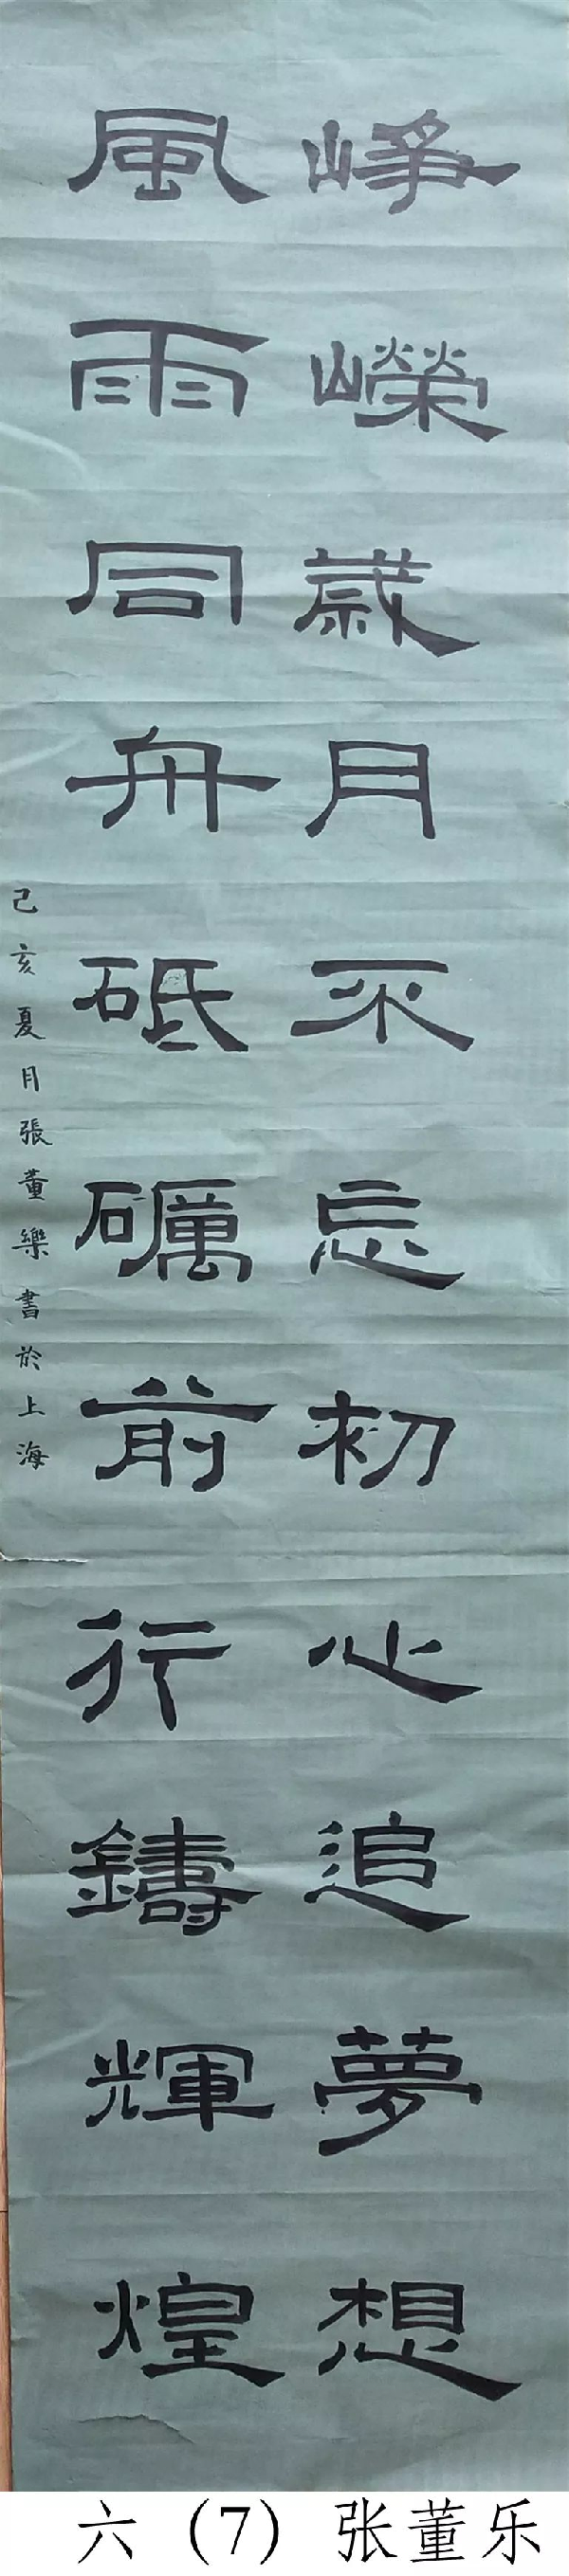 峥嶸歲月不忘初心追夢想
風雨同舟砥礪前行鑄輝煌
己亥夏月張董樂書於上海
六（7）张董乐